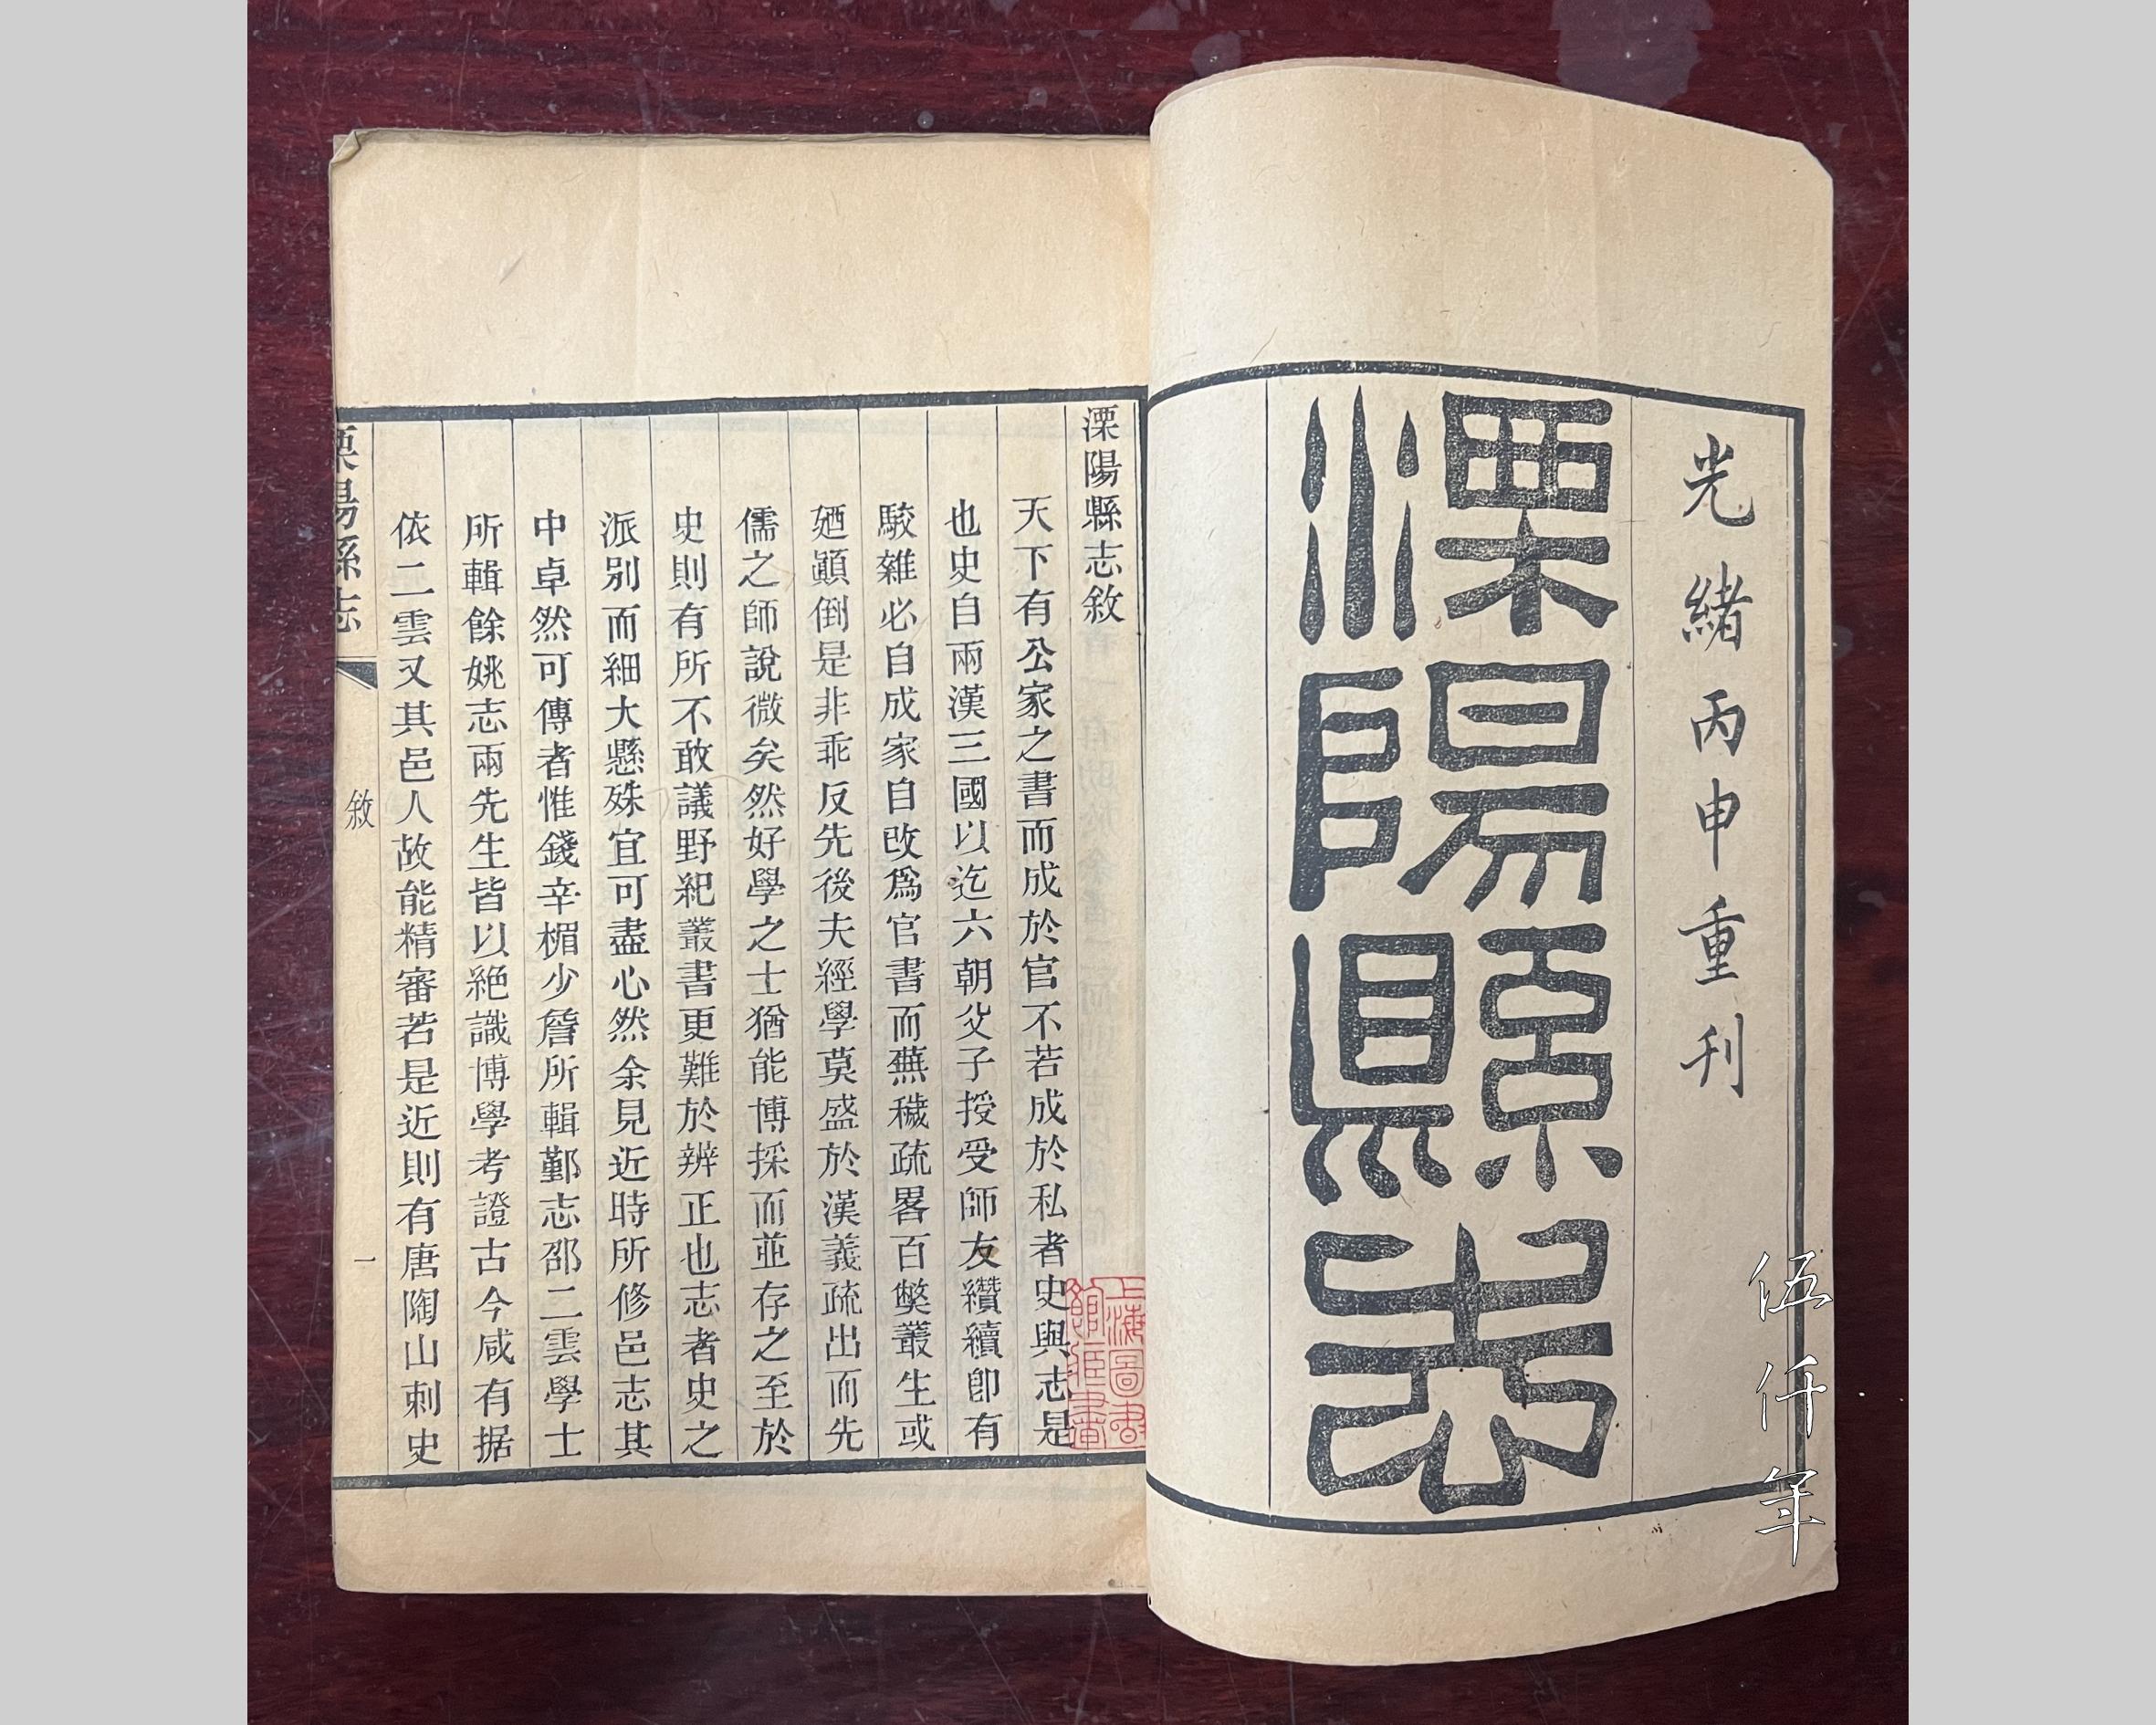 光緒丙申重刊
溧陽縣志
伍仟年
溧陽縣志敘
天下有公家之書而成於官不若成於私者史與志是
也史自兩漢三國以迄六朝父子授受師友纘續卽有
駮雜必自成家自改爲官書而蕪穢疏畧百獘叢生或
廼顚倒是非乖反先後夫經學莫盛於漢義疏出而先
儒之師說微矣然好學之士猶能博採而並存之至於
史則有所不敢議野紀叢書更難於辨正也志者史之
派别而細大懸殊宜可盡心然余見近時所修邑志其
中卓然可傳者惟錢辛楣少詹所輯鄞志邵二雲學士
所輯餘姚志兩先生皆以絕識博學考證古今咸有据
依二雲又其邑人故能精審若是近則有唐陶山刺史
溧陽縣志
敘
一
上海圖書
館
書